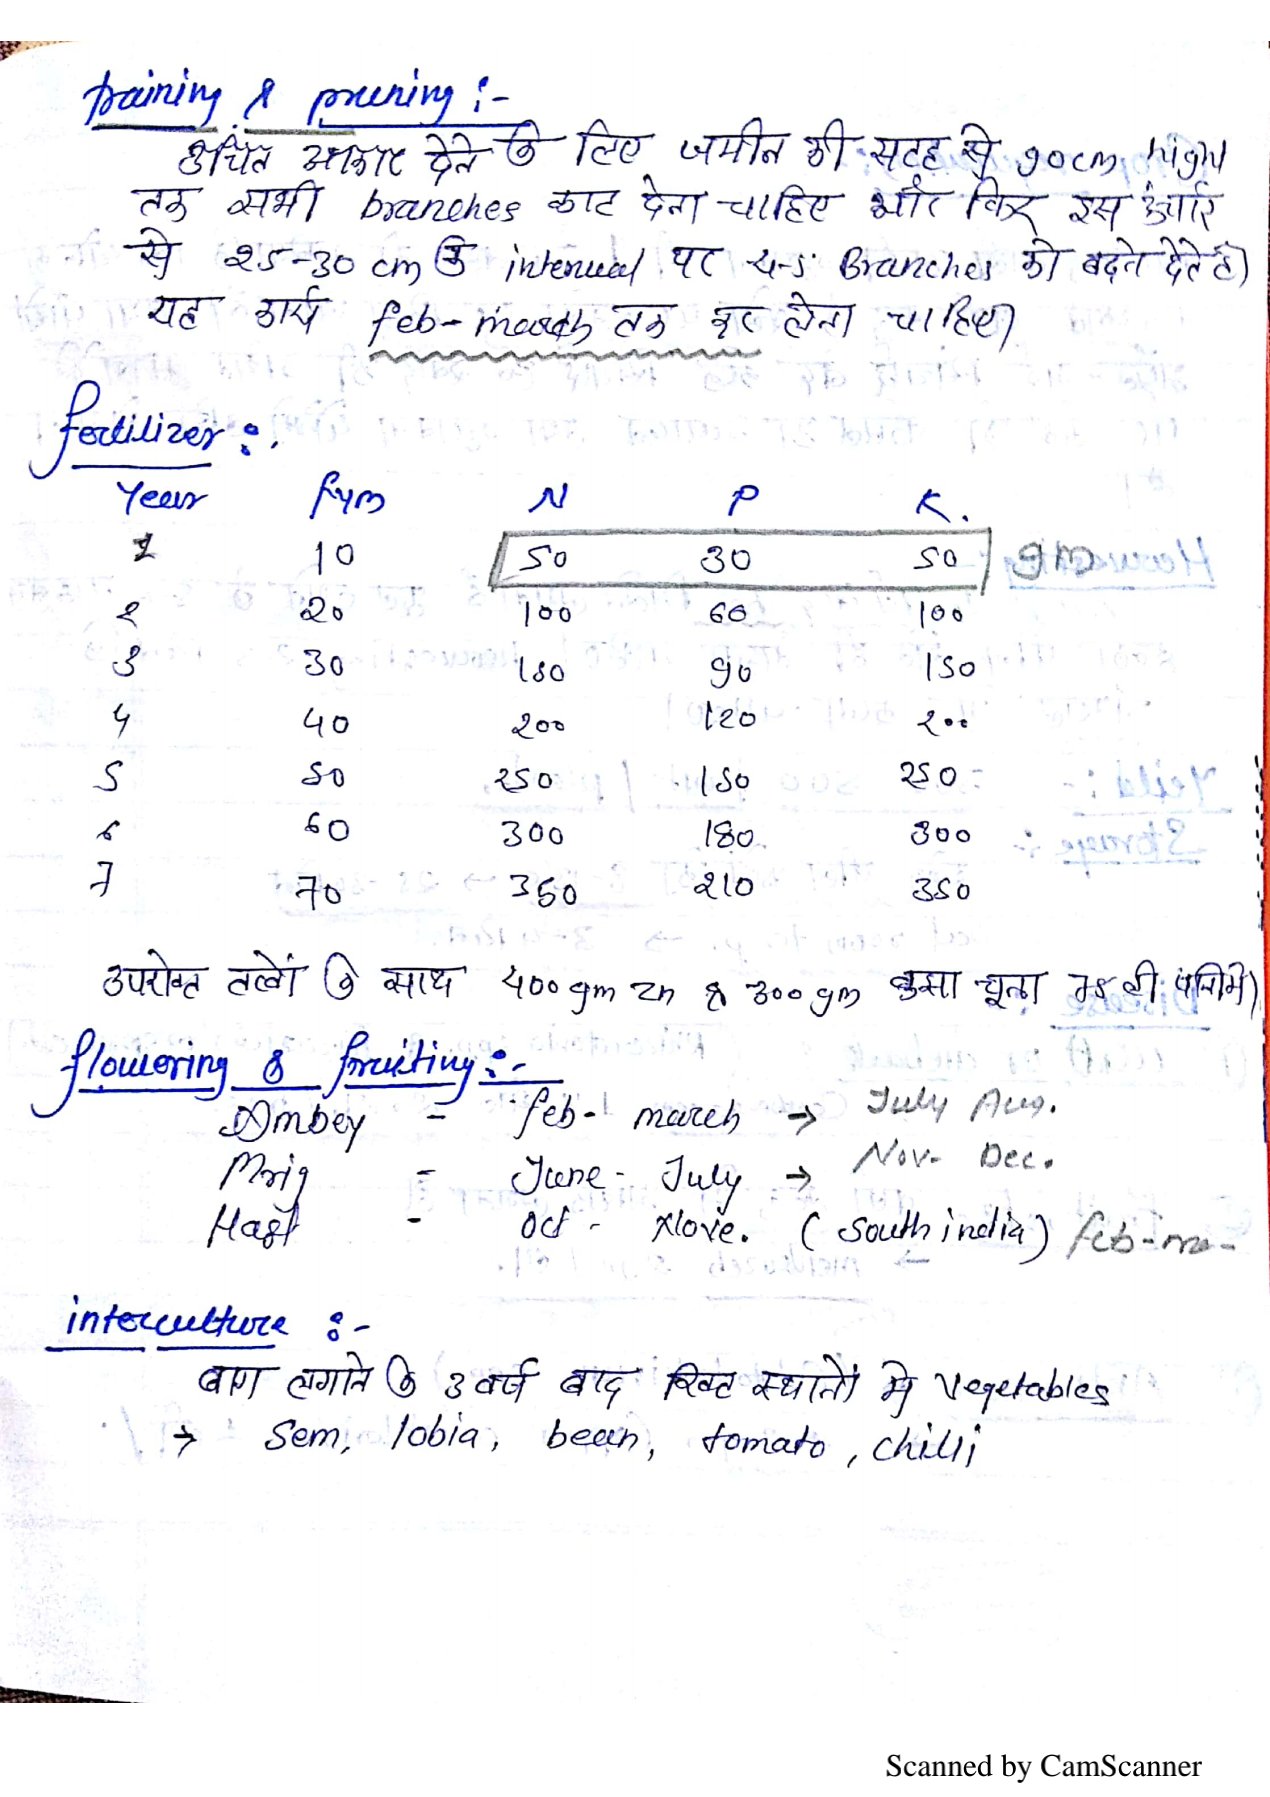 training & pruning :-
उचित आकार देने के लिए जमीन की सतह से 90 cm high
तक सभी branches काट देना चाहिए और फिर इस ऊंचाई
से 25-30 cm के interval पर 4-5 Branches को बढ़ने देते है।
यह कार्य feb-march तक कर लेना चाहिए।
fertilizer :-
Year fym N P K.
1 10 50 30 50 gm
2 20 100 60 100
3 30 150 90 150
4 40 200 120 200
5 50 250 150 250
6 60 300 180 300
7 70 350 210 350
उपरोक्त तत्वों के साथ 400 gm zn & 300 gm बुझा चूना
flowering & fruiting :-
Ambey - feb- march → July Aug.
Mrig - June- July → Nov- Dec.
Hast - oct - Nove. (South india) feb-ma-
interculture :-
बाग लगाने के 3 वर्ष बाद रिक्त स्थानों में vegetables
→ Sem, lobia, bean, tomato, chilli
Scanned by CamScanner